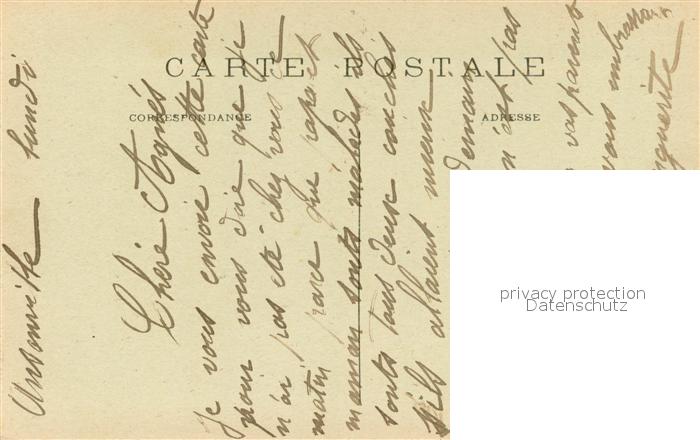 CARTE POSTALE
CORRESPONDANCE
ADRESSE
lundi
Chère Agnès
je vous envoie cette carte
pour vous dire que je
n'ai pas été chez vous ce
matin parce que papa et
maman sonts malades ils
sonts tous deux couchés
s'ils allaient mieux
demain
n'ont pas
vos parents
vous embrasse
privacy protection
Datenschutz